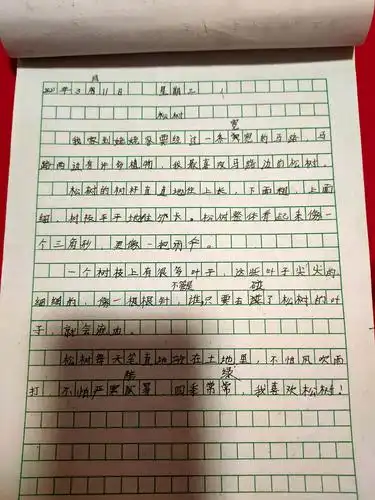 年3月11日 星期三
松树
我家到姥姥家要经过一条宽宽的马路,马
路两边有许多植物,我最喜欢马路边的松树。
松树的树干直直地往上长,下面粗,上面
细,树枝平平地往外长。松树整体看起来像一
个三角形,更像一把雨伞。
一个树枝上有很多叶子,这些叶子尖尖的,
细细的,像一根根针,谁只要去碰了松树的叶
子,就会
松树每天笔直地站在土地里,不怕风吹雨
打,不怕严寒酷暑,四季常绿,我喜欢松树!